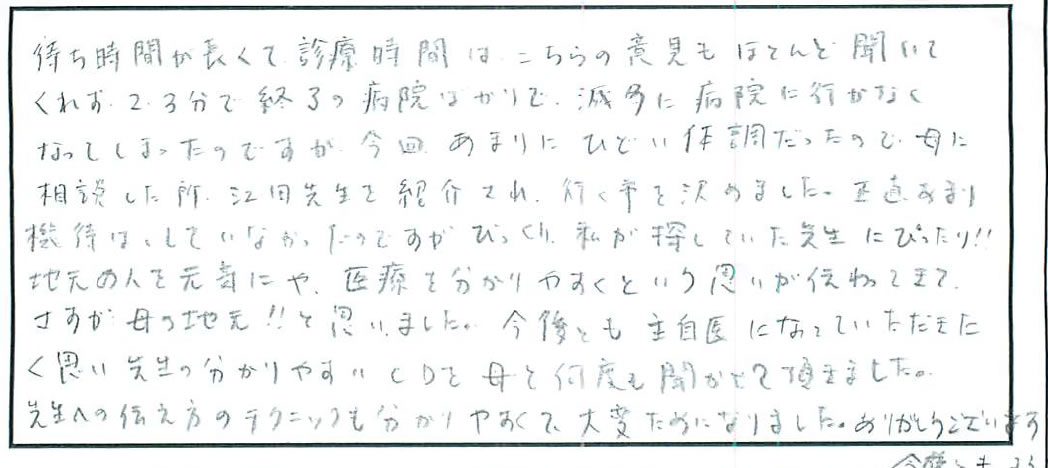 待ち時間が長くて、診療時間は、こちらの意見もほとんど聞いて
くれず、2、3分で終了の病院ばかりで、滅多に病院に行かなく
なってしまったのですが、今回、あまりにひどい体調だったので、母に
相談した所、江田先生を紹介され、行く事を決めました。正直あまり
機待は、していなかったのですがびっくり、私が探していた先生にぴったり!!
地元の人を元気にや、医療を分かりやすくという思いが伝わってきて、
さすが母の地元!!と思いました。今後とも主自医になっていただきた
く思い先生の分かりやすいCDを母と何度も聞かせて頂きました。
先生への伝え方のテクニックも分かりやすくて、大変ためになりました。ありがとうございます
今後とも